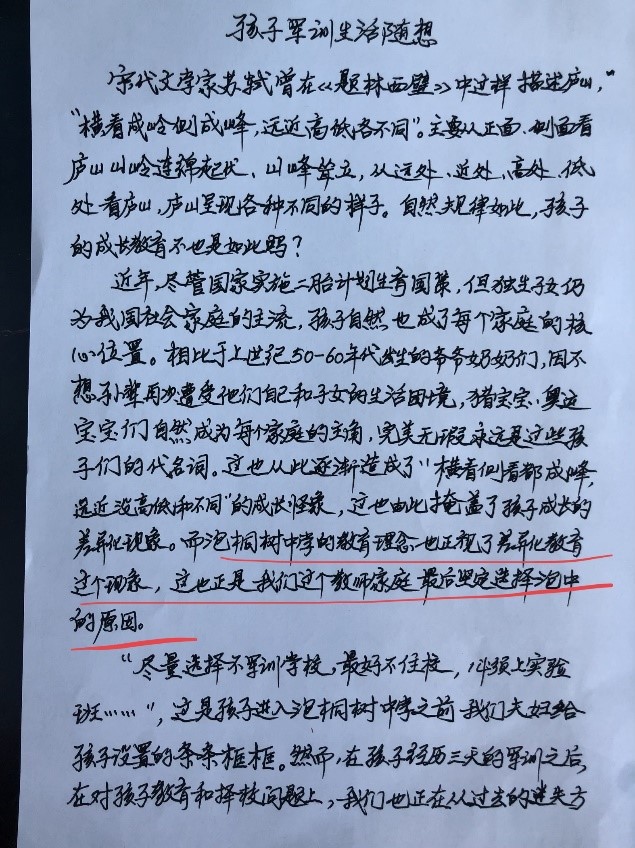 孩子军训生活随想
宋代文学家苏轼曾在《题林西壁》中这样描述庐山，
“横看成岭侧成峰，远近高低各不同”。主要从正面、侧面看
庐山山岭连绵起伏、山峰耸立，从远处、近处、高处、低
处看庐山，庐山呈现各种不同的样子。自然规律如此，孩子
的成长教育不也是如此吗？
近年，尽管国家实施二胎计划生育国策，但独生子女仍
为我国社会家庭的主流，孩子自然也成了每个家庭的核
心位置。相比于上世纪50-60年代出生的爷爷奶奶们，因不
想孙辈再次遭受他们自己和子女的生活困境，猪宝宝、奥运
宝宝们自然成为每个家庭的主角，完美无瑕永远是这些孩
子们的代名词。这也从此逐渐造成了“横看侧看都成峰，
远近没高低和不同”的成长怪象，这也由此掩盖了孩子成长的
差异化现象。而泡桐树中学的教育理念也正视了差异化教育
这个现象，这也正是我们这个教师家庭最后坚定选择泡中
的原因。
“尽量选择不军训学校，最好不住校，必须上实验
班……”，这是孩子进入泡桐树中学之前我们夫妇给
孩子设置的条条框框。然而，在孩子经历三天的军训之后，
在对孩子教育和择校问题上，我们也正在从过去的迷失方